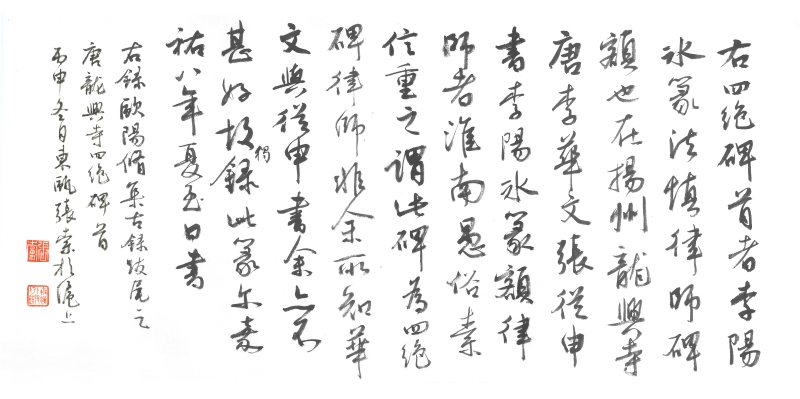 右四絕碑首者李陽
冰篆法慎律師碑
額也在揚州龍興寺
唐李華文張從申
書李陽冰篆額律
師者淮南愚俗素
信重之謂此碑為四絕
碑律師非余所知華
文與從申書余亦不
甚好故獨錄此篆尔嘉
祐八年夏至日書
右錄歐陽脩集古錄跋尾之
唐龍興寺四絕碑首
丙申冬日東甌張索於滬上